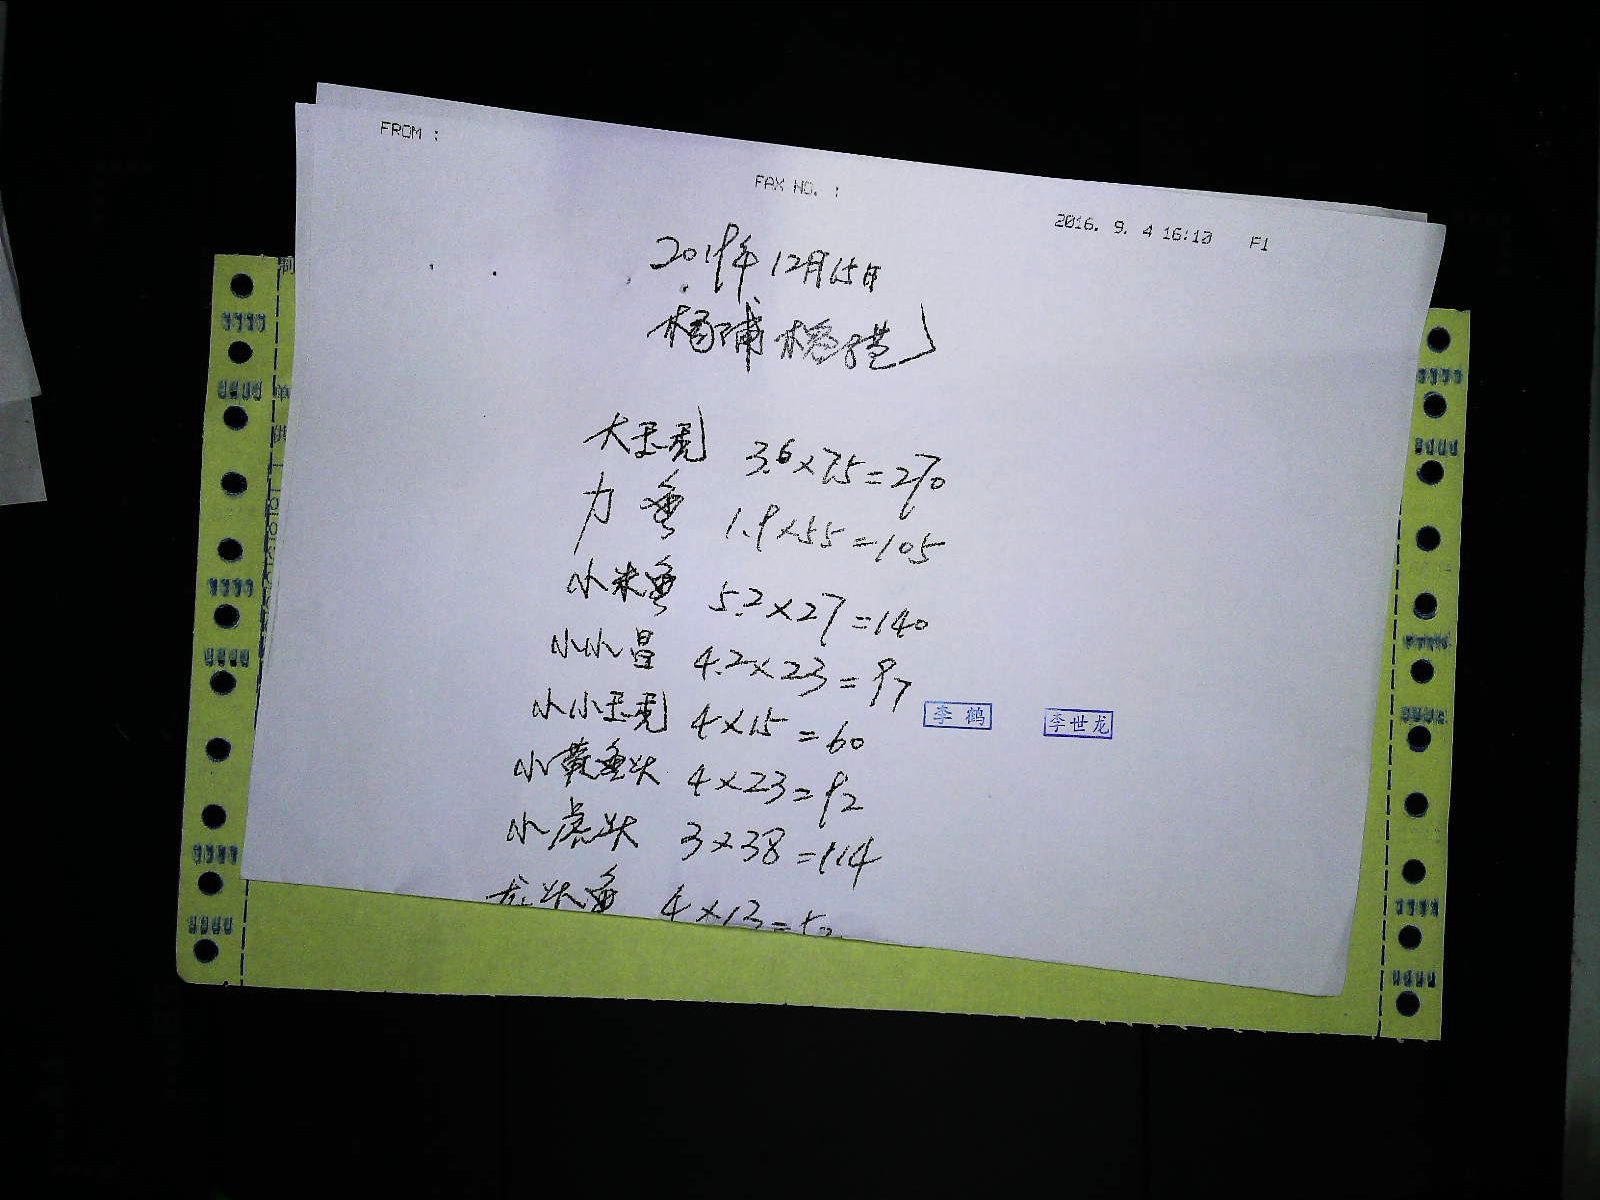 FROM :
FAX NO. :
2016. 9. 4 16:10 P1
2019年12月15日
杨浦
大玉秃 3.6×75=270
力鱼 1.9×55=105
小米鱼 5.2×27=140
小小昌 4.2×23=97
小小玉秃 4×15=60
小黄鱼头 4×23=92
小虎头 3×38=114
龙头鱼 4×13=52
李鹤
李世龙
单
供